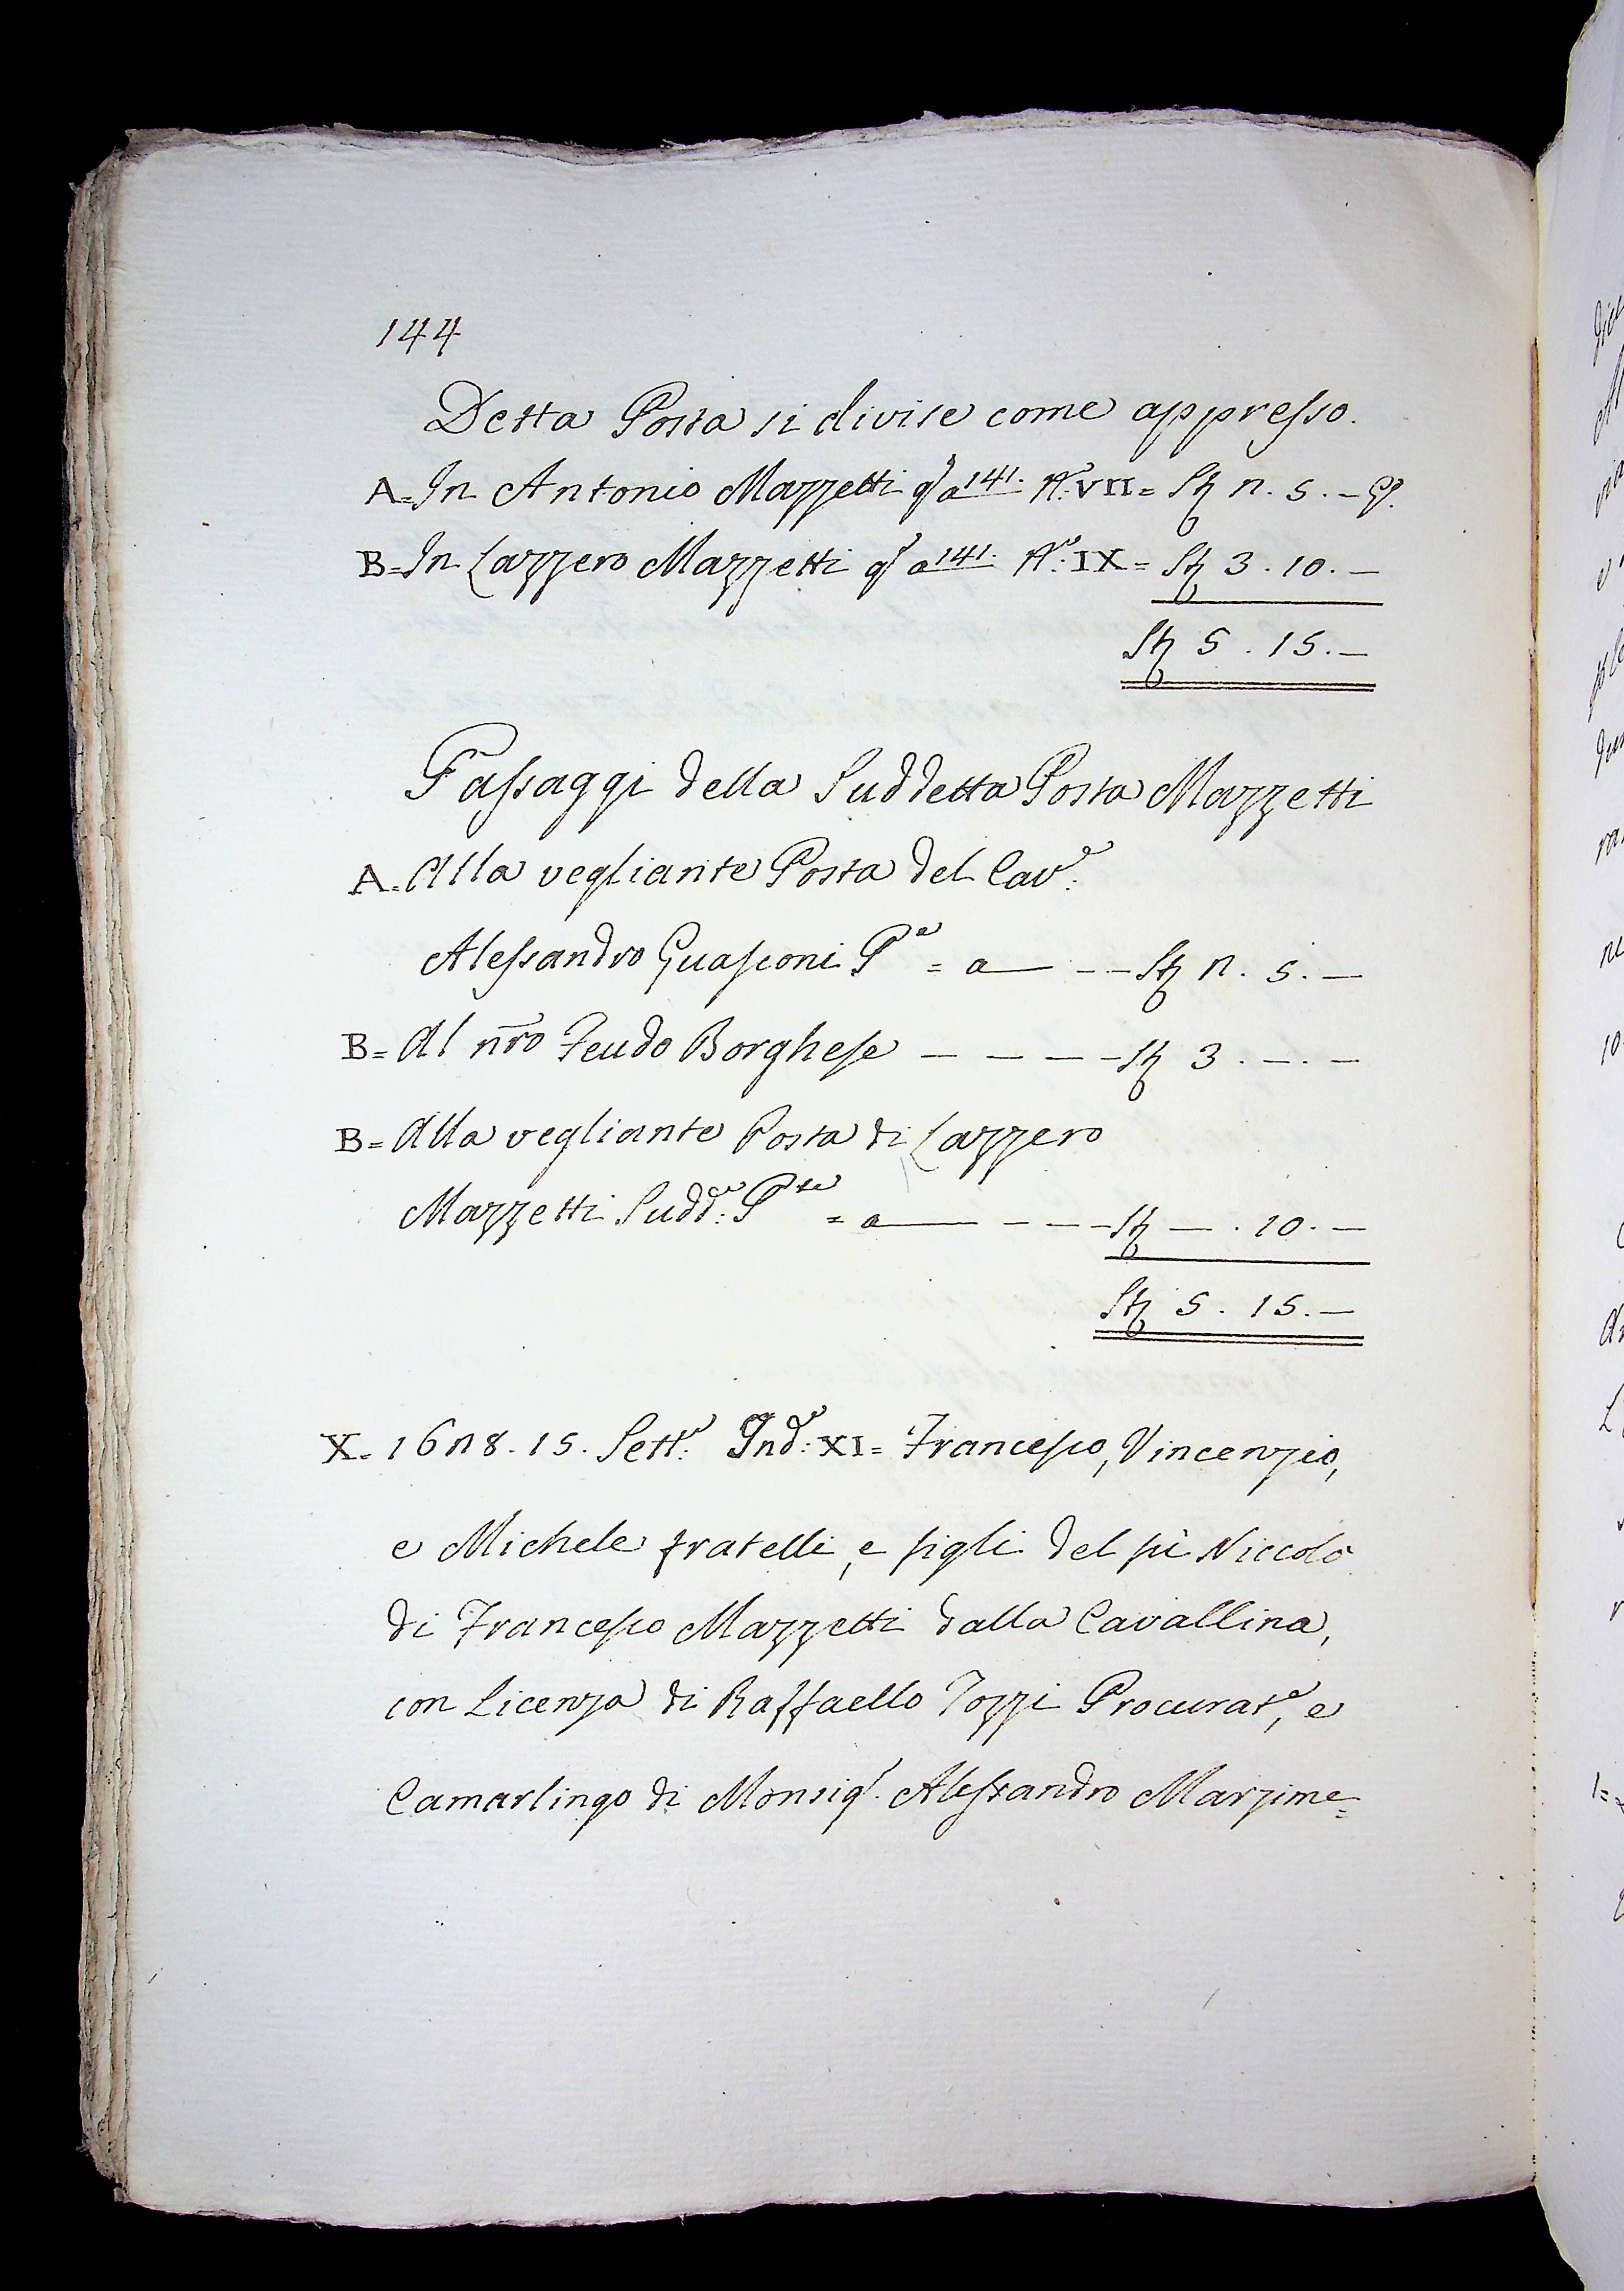 144
Detta Posta si divise come appresso.
A= In Antonio Mazzetti qˡ a 141. Nº: VII = Stj 2. 5. —
B= In Lazzero Mazzetti qˡ a 141. Nº: IX = Stj 3. 10. —
Stj 5. 15. —
Passaggi della Suddetta Posta Mazzetti
A= Alla vegliante Posta del Cavᵉ:
Alessandro Guasconi Pᵃ = a — - - Stj 2. 5. —
B= Al nr̄o Feudo Borghese — — — — Stj 3. —. —
B= Alla vegliante Posta di Lazzero
Mazzetti Suddᵉ: Pᵗᵉ = a — - - - Stj —. 10. —
Stj 5. 15. —
X= 1628. 15. Settᵉ: Indᵉ: XI= Francesco, Vincenzio,
e Michele fratelli, e figli del fù Niccolò
di Francesco Mazzetti dalla Cavallina,
con Licenza di Raffaello Tozzi Procuratᵉ, e
Camarlingo di Monsigʳ. Alessandro Marzime=